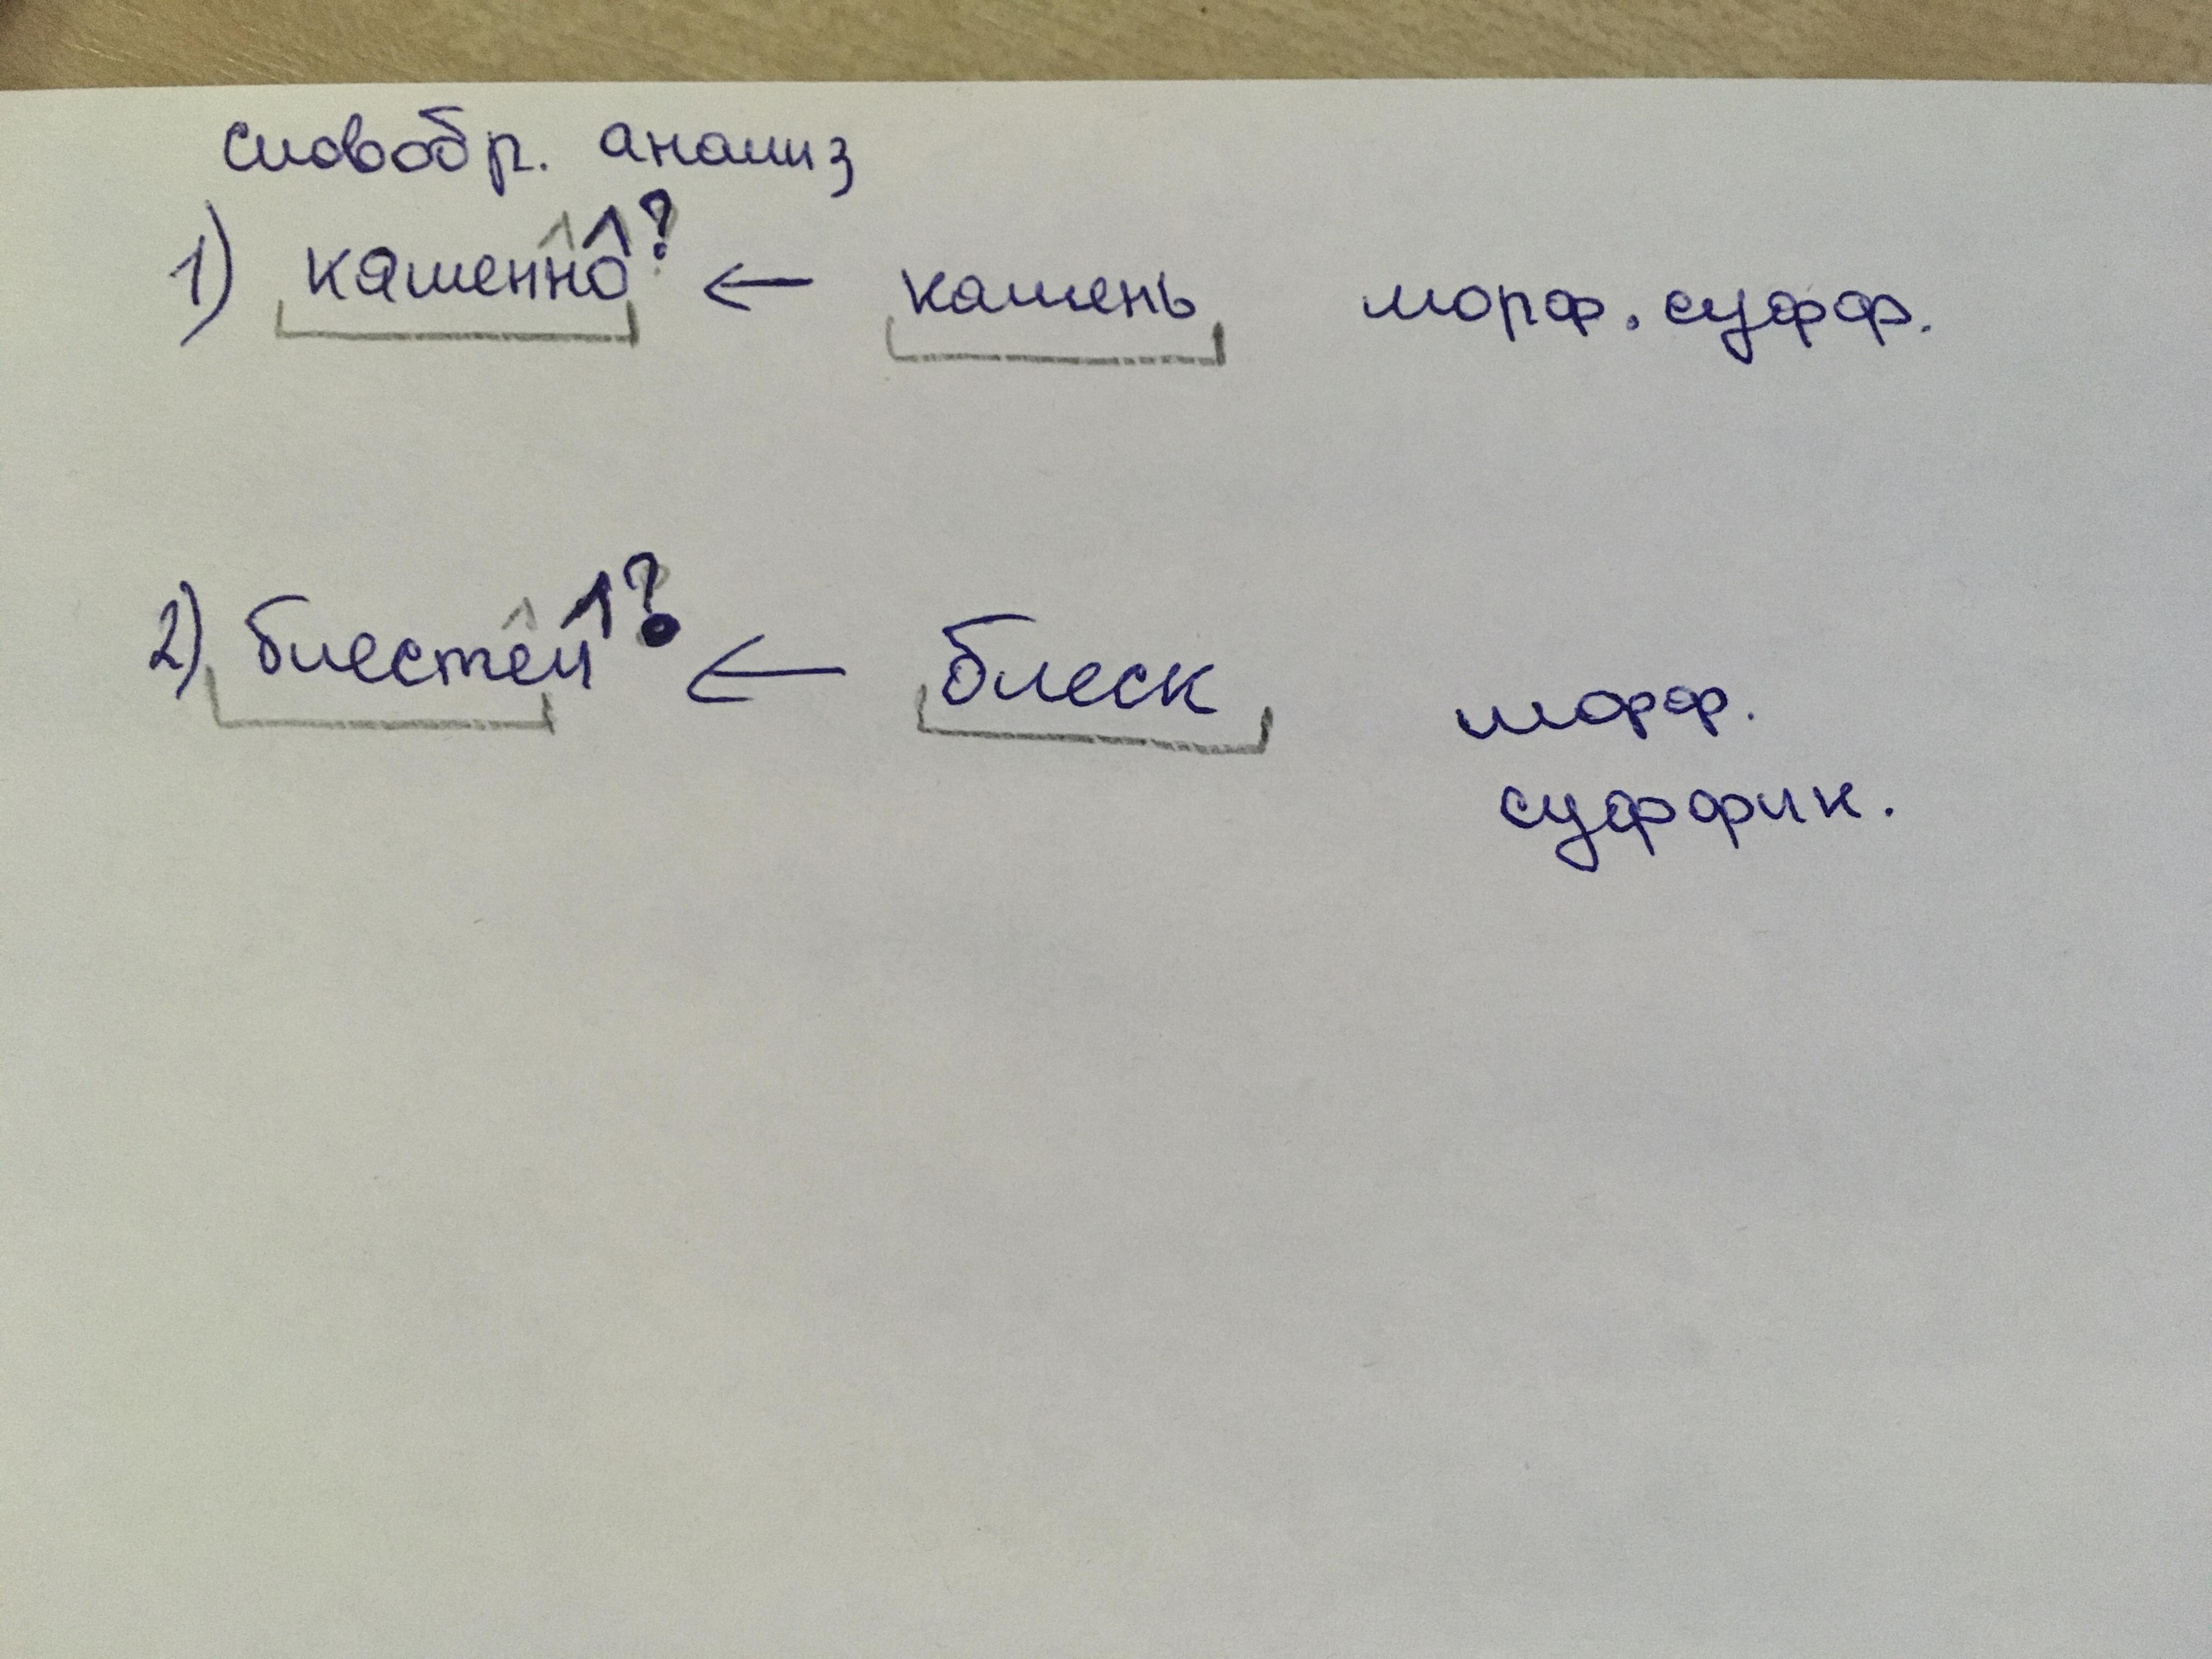 словобр. анализ
1) каменно? ← камень морф. суфф.
2) блестел? ← блеск морф.
суффик.